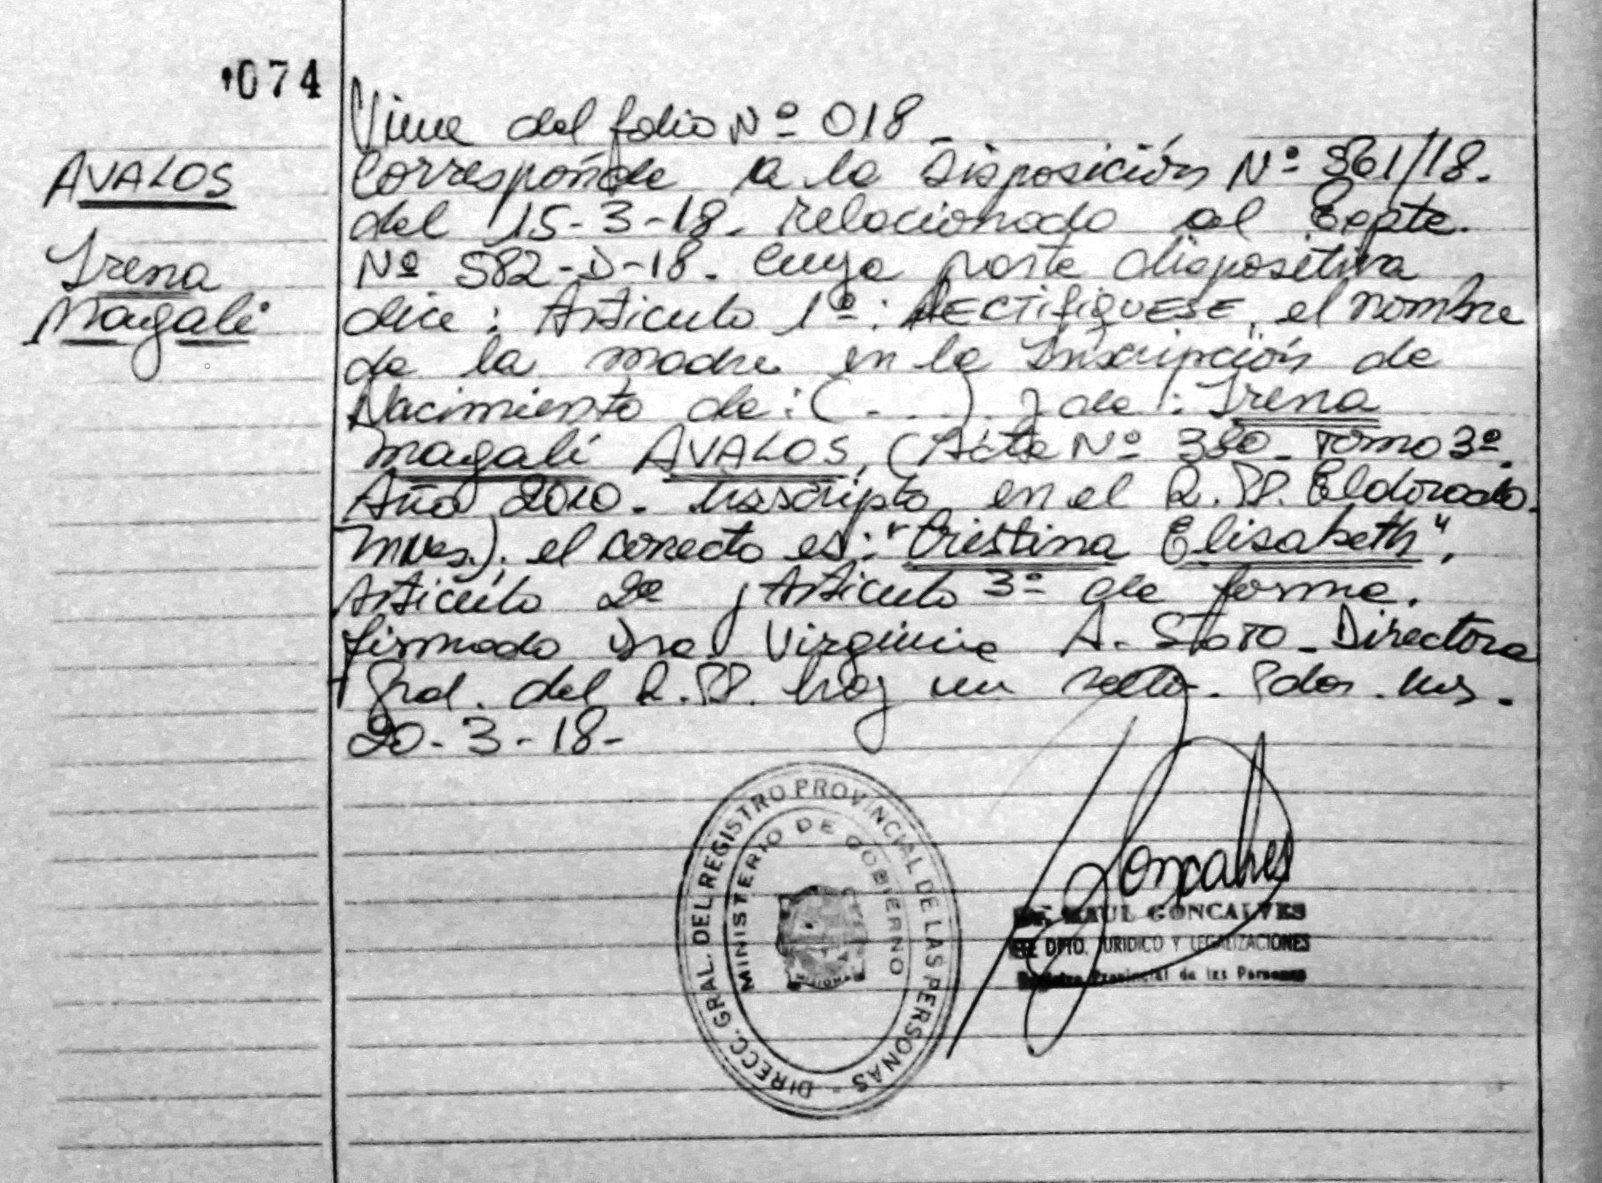 074
AVALOS
Irena
Magalí
Viene del folio Nº 018.
Corresponde a la Disposición Nº 561/18.
del 15-3-18. relacionado al Expte.
Nº 582-D-18. Cuya parte dispositiva
dice: Articulo 1º: RECTIFIQUESE, el nombre
de la madre en la Inscripción de
Nacimiento de: (...) y de: Irena
Magalí AVALOS, (Acta Nº 380- Tomo 3º.
Año 2010. Inscripto en el R.PP. Eldorado.
Mnes.), el correcto es: "Cristina Elisabeth".
Articulo 2º y Articulo 3º de forma.
firmado Dra. Virginia A. - Directora
Gral. del R.PP. hoy un sello. Pdas. Mns.
20-3-18-
DIRECC. GRAL. DEL REGISTRO PROVINCIAL DE LAS PERSONAS -
MINISTERIO DE GOBIERNO
Goncalves
RAUL GONCALVES
DPTO. JURIDICO Y LEGALIZACIONES
Registro Provincial de las Personas